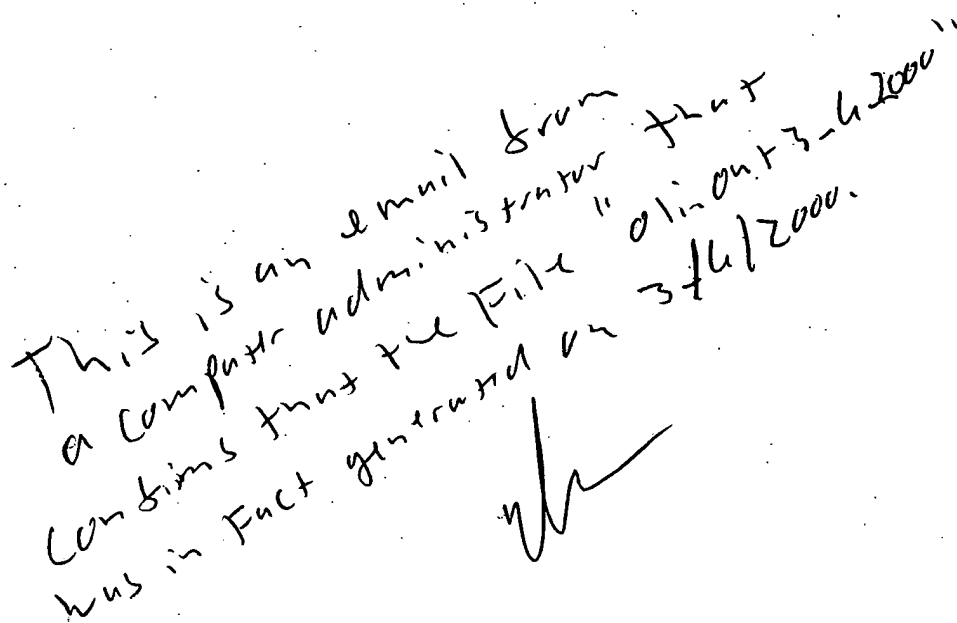 This is an email from
a computer administrator that
confirms that the File "olinout3_42000"
was in Fact generated on 3/4/2000.